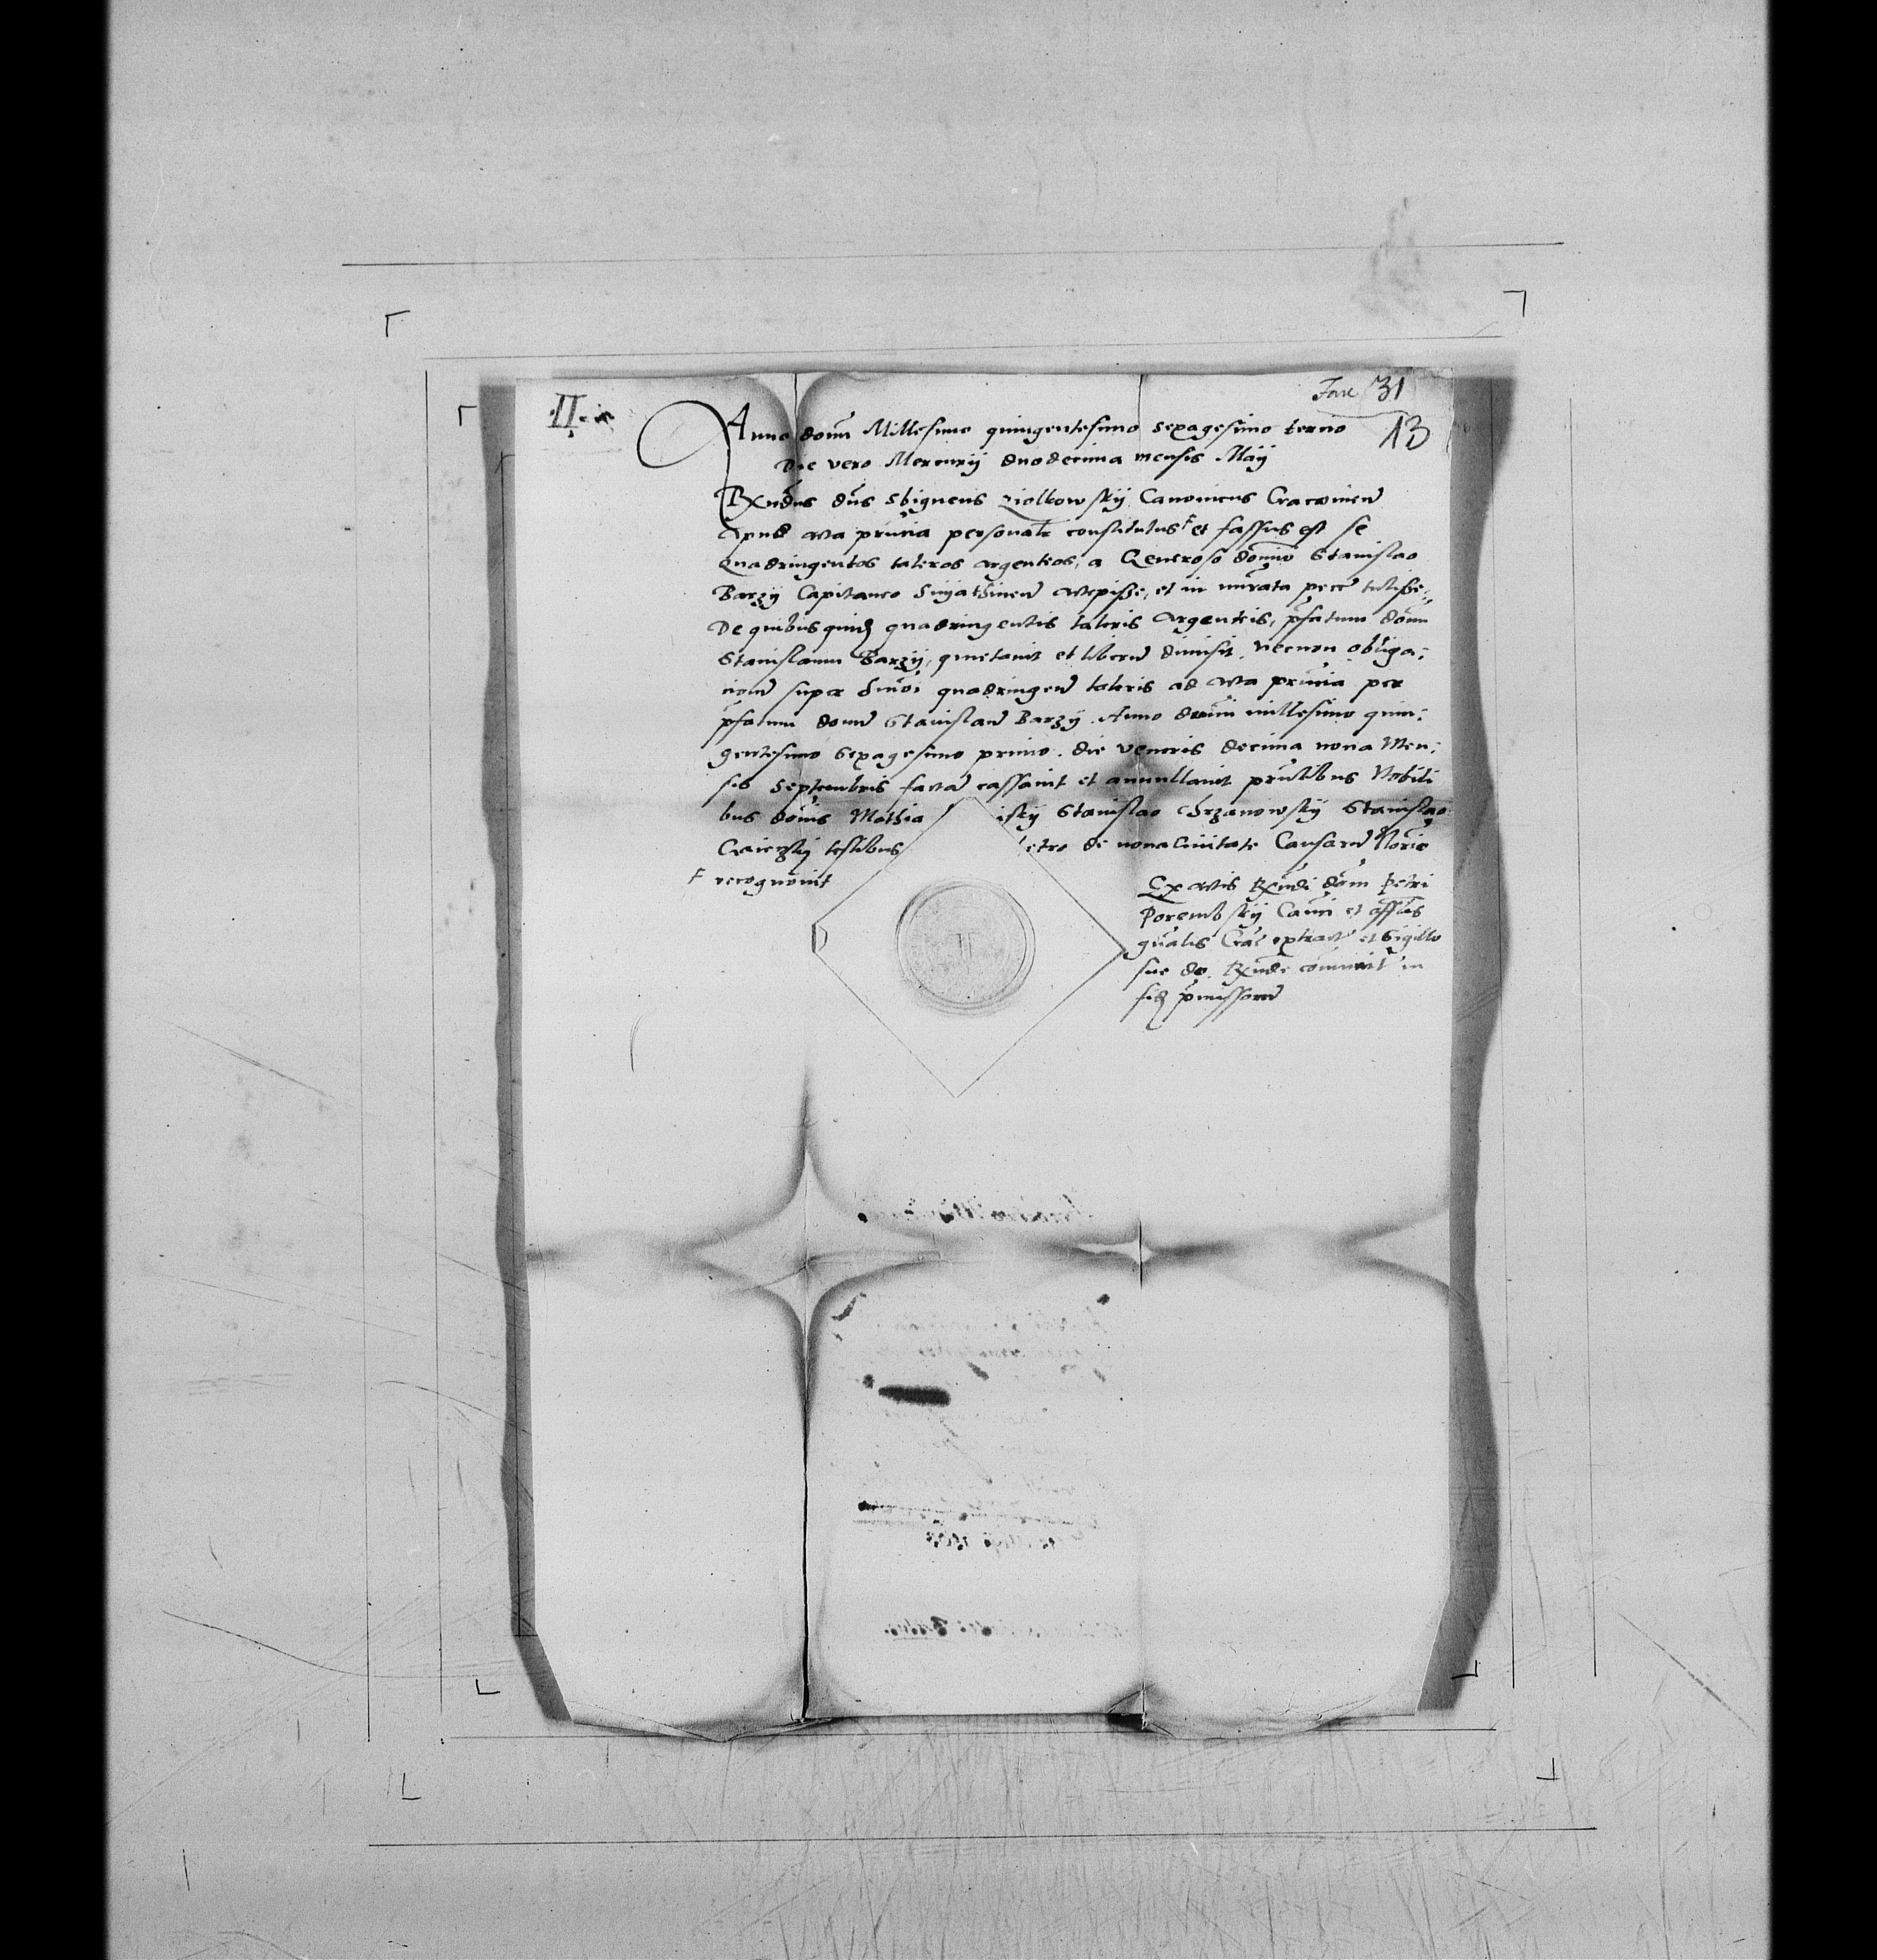 II
Fasc 31
13
Anno domi Millesimo quingentesimo sexagesimo tercio
Die vero Mercurij duodecima mensis Maij
Rxndus dns Sbigneus Ziolkowskij Canonicus Cracovien
apud acta prntia personalr constitutus F et fassus est se
quadringentos taleros argenteos, a Generoso domino Stanislao
Barzij Capitaneo Snyathinen accepisse, et in nurata pecc tulisse:
De quibus quidq quadringentis taleris argenteis, pfatum domi
Stanislaum Barzij, quietavit et liberu dimisit. Necnon obliga:
cionem super hmoi quadringen taleris ad acta prntia per
pfatum domn Stanislau Barzij. Anno domini millesimo quin:
gentesimo sexagesimo primo. die veneris decima nona Men:
sis Septembris facta cassavit et annullavit prntibus Nobili
bus domis Mathia skij Stanislao Chrzanowskij Stanislao
testibus etro de nova Civitate Causaru Norio
F recognovit
Ex actis Rxndi domi Petri
Porembskij Cani et offlis
gnalis Crac extract et Sigillo
sue do. Rxnde communit in
fidq pmissoru